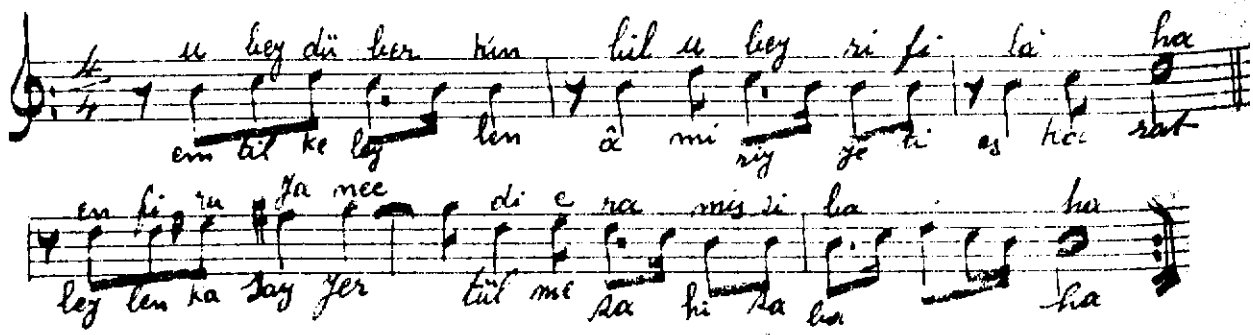 4/4
u bey dü ber kün hil u bey zi fi la ha
em til ke ley len â mi riy ye ti es ha rat
en fi ru ya nee di e ra mis zi ba ha
ley len ka say yer tül me sa hi sa ba ha